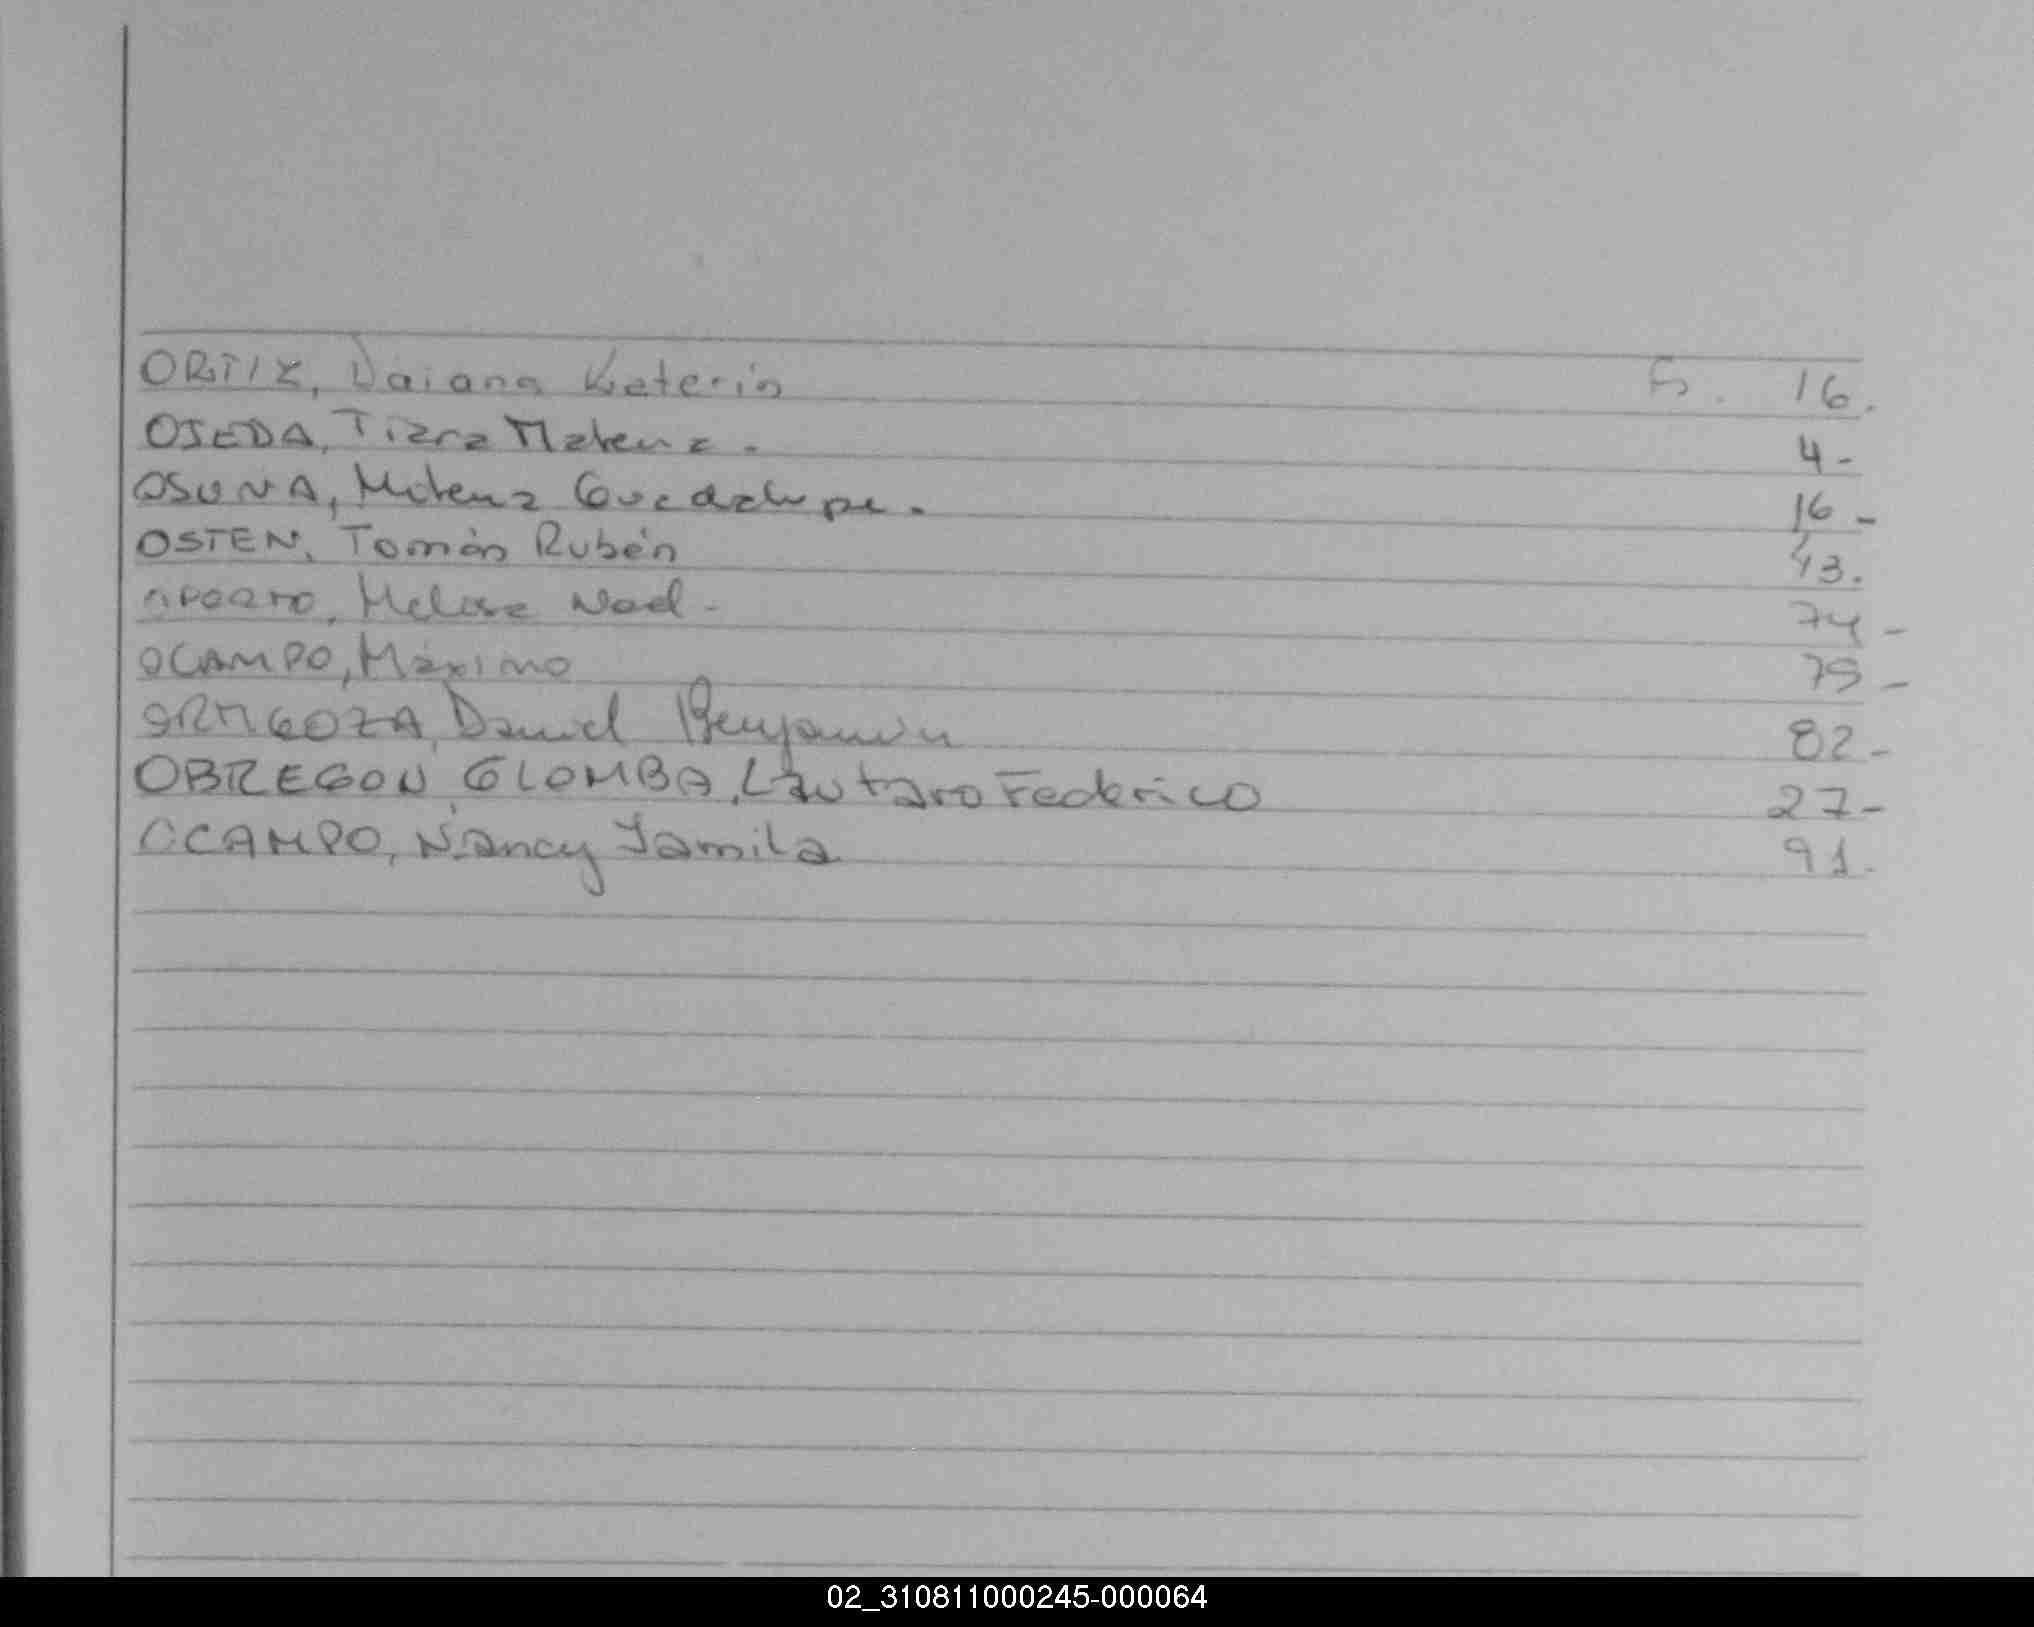 ORTIZ, Daiana Keterin Fs. 16.
OJEDA, Tiara Malena. 4-
OSUNA, Milena Guadalupe. 16-
OSTEN, Tomás Rubén 43.
OPORTO, Melisa Noel- 74-
OCAMPO, Máximo 79-
ORMGOZA, Daniel Benjamin 82-
OBREGON GLOMBA, Lautaro Federico 27-
OCAMPO, Nancy Jamila 91-
02_310811000245-000064